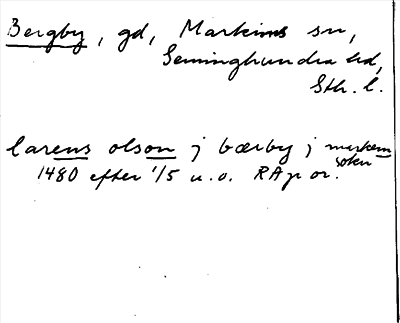 Bergby, gd, Markims sn,
Seminghundra hd,
Sth. l.
larens olson j bærby j markem
soken
1480 efter 1/5 u.o. RAp or.